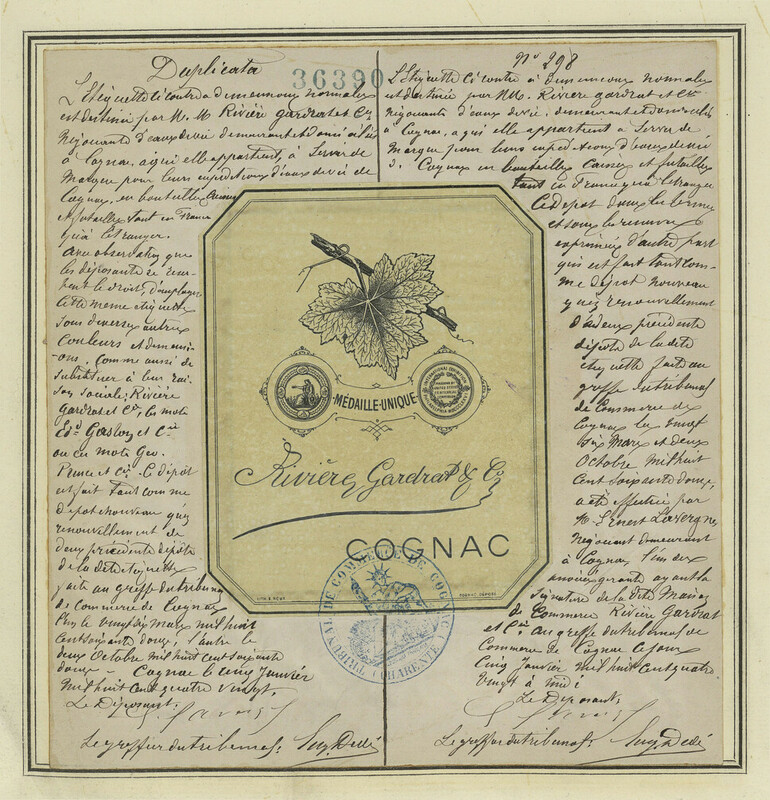 Duplicata
36390
L'Etiquette ci contre a dimensions normales
est destinée par M. M. Rivière Gardrat et Cie
Négociants d'eaux de vie demeurant et domiciliés
à Cognac, a qui elle appartient, à Servir de
Marque pour leurs expéditions d'eaux de vie de
Cognac, en bouteilles Caisses
et futailles tant en France
qu'à l'étranger.
Avec observation que
les déposants se reser-
vent le droit, d'employer
Cette meme etiquette
Sous diverses autres
Couleurs et dimensi-
-ons, Comme aussi de
Substituer à leur rai-
son sociale; Rivière
Gardrat et Cie, les mots
et Cie
ou ces mots Geo.
Prunc et Cie. Le dépôt
est fait tant comme
dépot nouveau qu'en
renouvellement de
deux précédents dépôts
de la dite etiquette
faits au greffe du tribunal
de Commerce de Cognac
l'un le vingt six Mars mil huit
cent soixante douze, l'autre le
deux Octobre mil huit cent soixante
douze - Cognac le cinq Janvier
Mil huit cent quatre vingt.
Le Déposant.
Le greffier du tribunal. Eug. Dedé
No 298
L'Etiquette ci contre à dimensions normales
est destinée par MM. Rivière Gardrat et Cie
Négociants d'eaux de vie, demeurant et domiciliés
à Cognac, a qui elle appartient à Servir de
Marque pour leurs expéditions d'eaux de vie
de Cognac en bouteilles Caisses et futailles
tant en France qu'à l'étranger
Ce dépot dans les termes
et sous les reserves
exprimées d'autre part
qui est fait tant com-
me dépot nouveau
qu'en renouvellement
de deux précédents
dépôts de la dite
etiquette faits au
greffe du tribunal
de Commerce de
Cognac les vingt
six Mars et deux
Octobre mil huit
cent soixante douze,
a été effectué par
M. Ernest Lavergne
Négociant demeurant
à Cognac l'un des
associés gérants ayant la
Signature de la dite Maison
de Commerce Rivière Gardrat
et Cie au greffe du tribunal de
Commerce de Cognac ce jour
Cinq Janvier mil huit cent quatre
vingt à midi
Le Déposant;
Le greffier du tribunal. Eug. Dedé
MÉDAILLE-UNIQUE
INTERNATIONAL EXHIBITION
PHILADELPHIA MDCCCLXXVI
Rivière, Gardrat & Co
COGNAC
TRIBUNAL DE COMMERCE DE COGNAC
(CHARENTE)